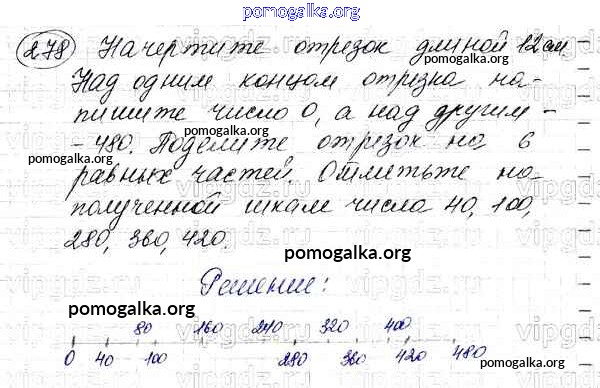 pomogalka.org
278 Начертите отрезок длиной 12 см
Над одним концом отрезка на-
пишите число 0, а над другим -
- 480. Поделите отрезок на 6
pomogalka.org
равных частей. Отметьте на
полученной шкале числа 40, 100,
280, 360, 420.
pomogalka.org
Решение:
pomogalka.org
80 160 240 320 400
0 40 100 280 360 420 480
pomogalka.org
pomogalka.org